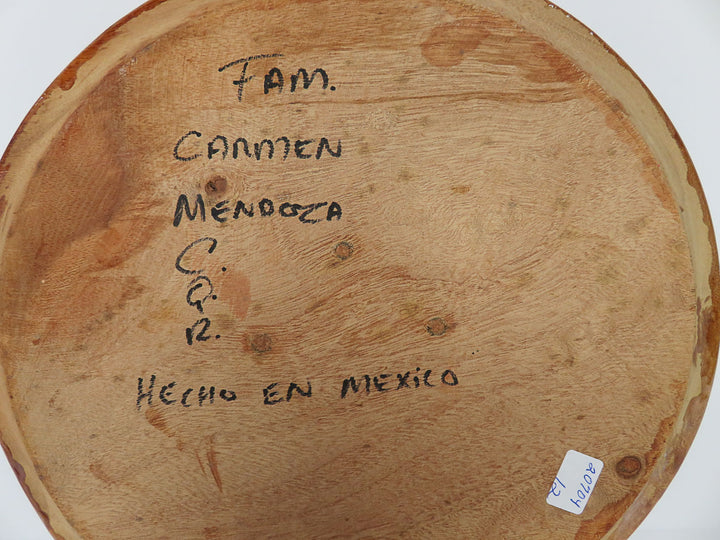 FAM.
CARMEN
MENDOZA
C.
Q.
R.
HECHO EN MEXICO
20704
12